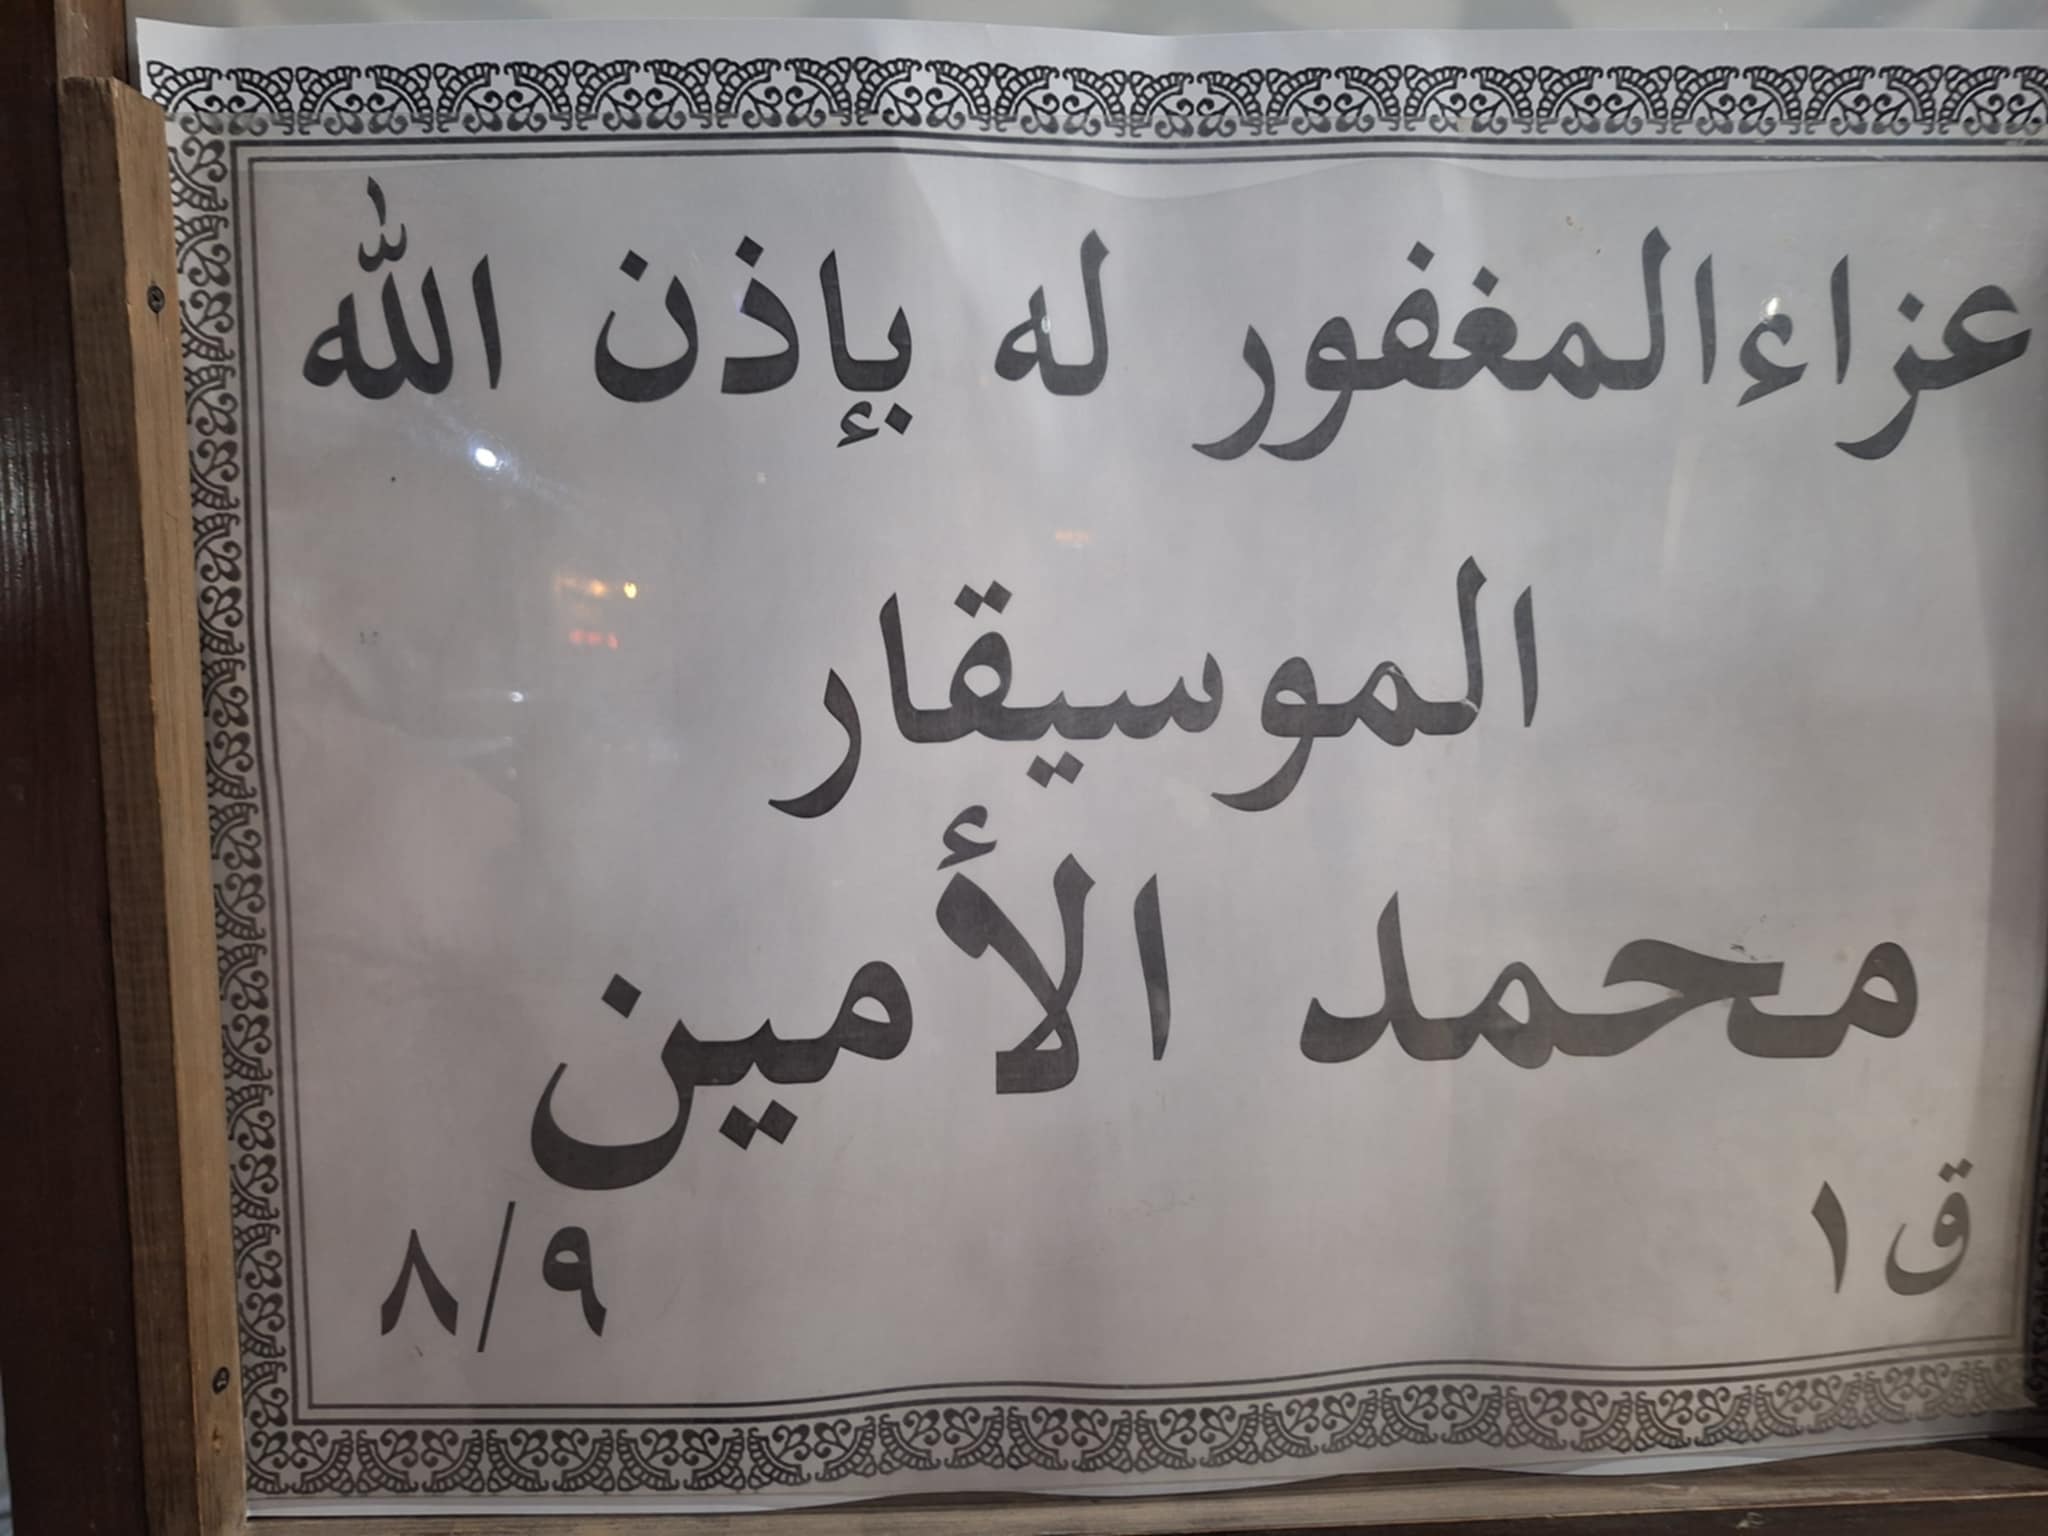 عزاء المغفور له بإذن الله
الموسيقار
محمد الأمين
ق ١
٨/٩